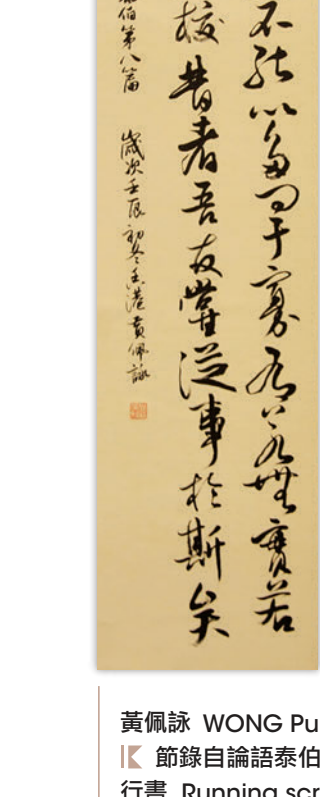 不能以多問于寡有若無實若
校昔者吾友嘗從事於斯矣
伯第八篇 歲次壬辰初冬香港黃佩詠
黃佩詠 WONG Pu
節錄自論語泰伯
行書 Running scr